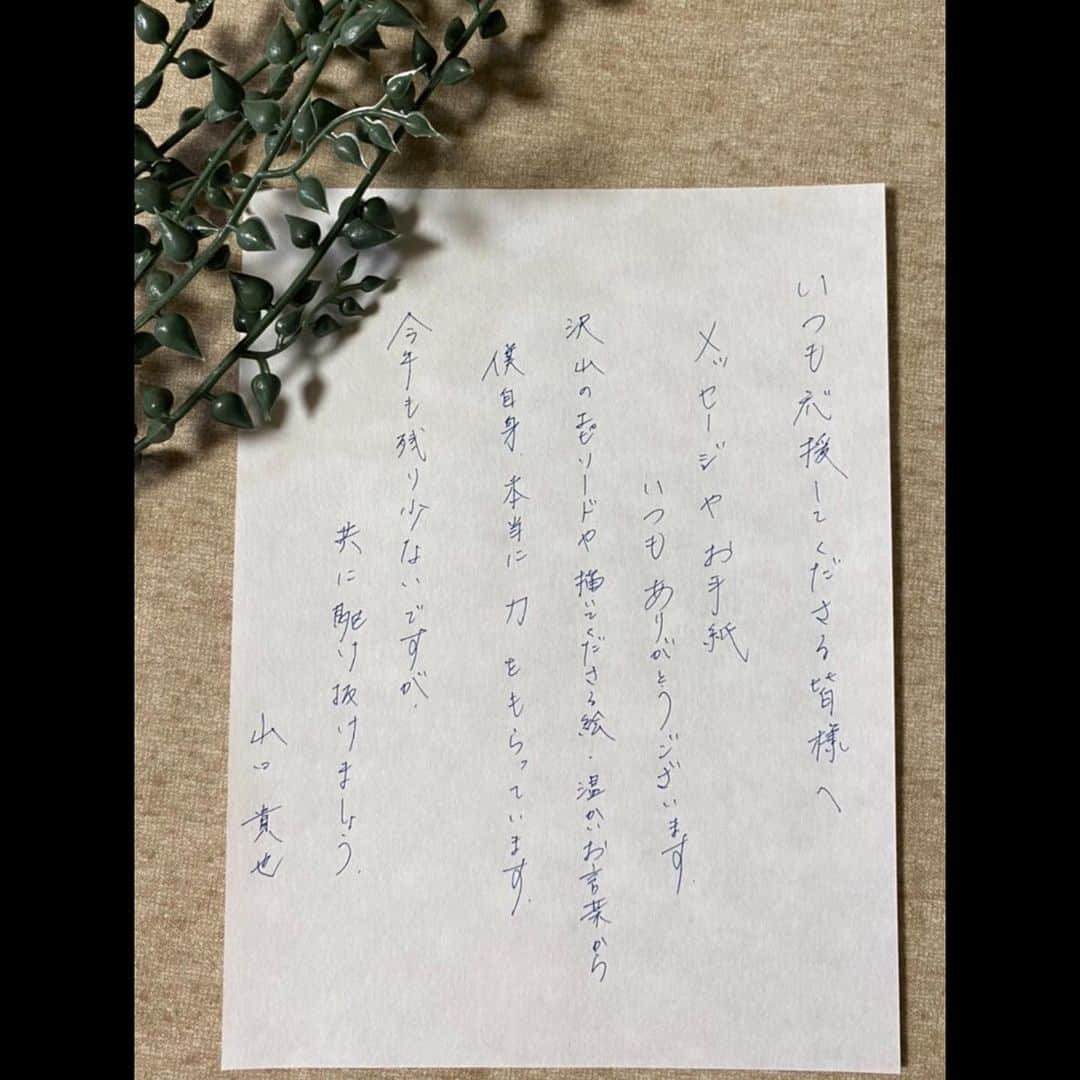 いつも応援してくださる皆様へ
メッセージやお手紙
いつもありがとうございます.
沢山のエピソードや描いてくださる絵.温かいお言葉から
僕自身.本当に力をもらっています.
今年も残り少ないですが.
共に駆け抜けましょう.
山口貴也